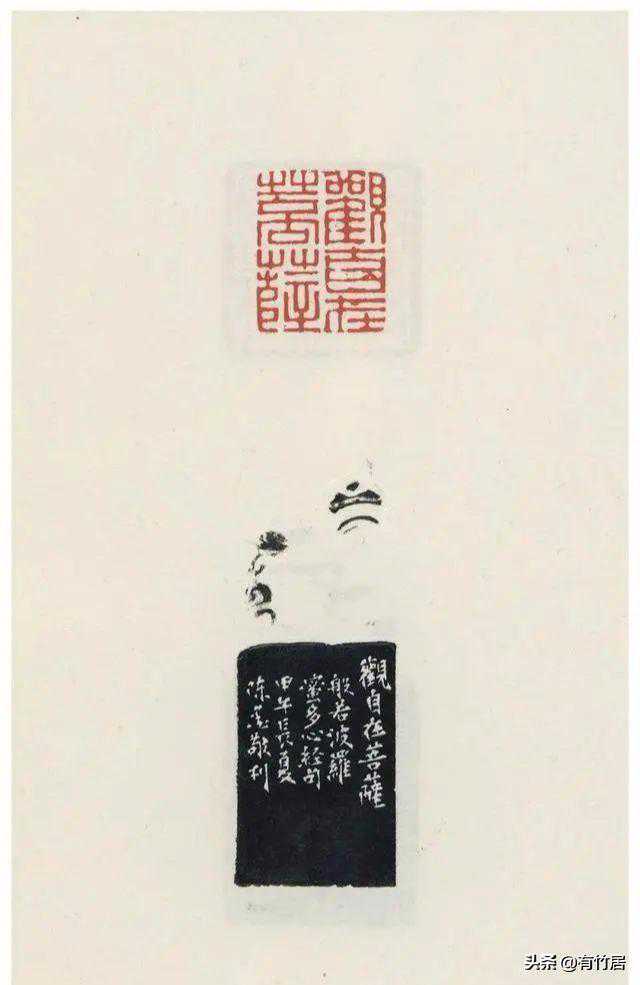 觀自在
菩薩
觀自在菩薩
般若波羅
蜜多心經句
甲午長夏
陈敬
头条 @有竹居